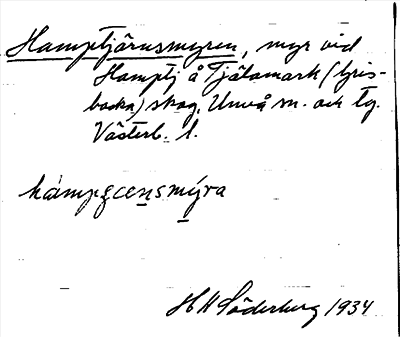 Hamptjärnsmyren, myr vid
Hamptj å Tjälamark (Gris-
backa) skog, Umeå sn. och tg.
Västerb. l.
hámpçcensmýra
H H Söderberg 1934